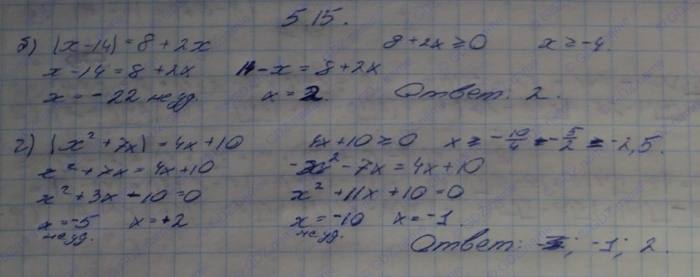 5.15.
б) |x-14| = 8 + 2x    8 + 2x ≥ 0    x ≥ -4
x - 14 = 8 + 2x    14 - x = 8 + 2x
x = -22 не уд.    x = 2.    Ответ: 2.
г) |x² + 7x| = 4x + 10    4x + 10 ≥ 0    x ≥ -10/4 = -5/2 = -2,5.
x² + 7x = 4x + 10    -x² - 7x = 4x + 10
x² + 3x - 10 = 0    x² + 11x + 10 = 0
x = -5    x = +2    x = -10    x = -1
не уд.    не уд.
Ответ: -1; 2.